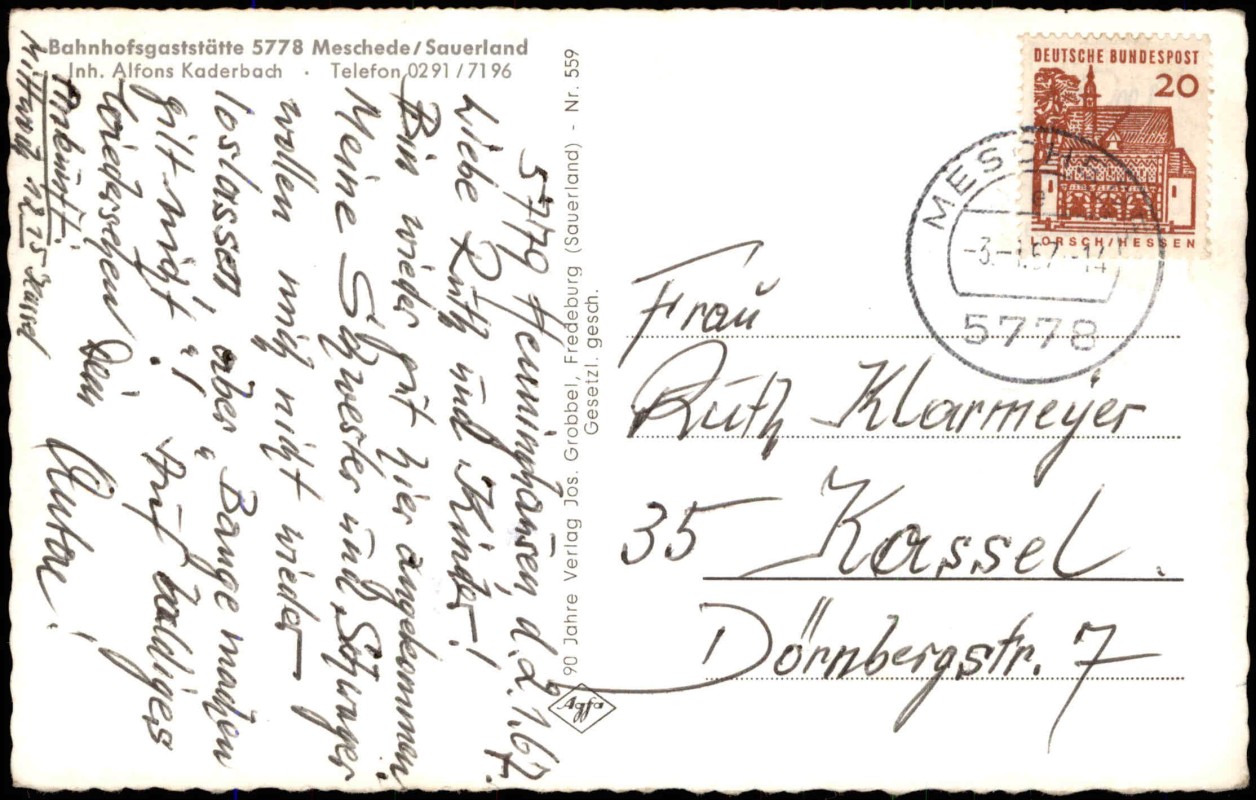 Bahnhofsgaststätte 5778 Meschede/Sauerland
Inh. Alfons Kaderbach · Telefon 0291/7196
5779 Henninghausen, d. 2.1.67.
Liebe Ruth und Kinder!
Bin wieder gut hier angekommen.
Meine Schwester und Schwager
wollen mich nicht wieder
loslassen, aber „Bange machen
gilt nicht"! Auf baldiges
Wiedersehen Dein
Anton!
Ankunft:
Mittwoch 12.15 Kassel
90 Jahre Verlag Jos. Grobbel, Fredeburg (Sauerland) - Nr. 559
Gesetzl. gesch.
Agfa
DEUTSCHE BUNDESPOST
20
LORSCH/HESSEN
MESCHEDE
e
-3.-1.67.-14
5778
Frau
Ruth Klarmeyer
35 Kassel.
Dörnbergstr. 7